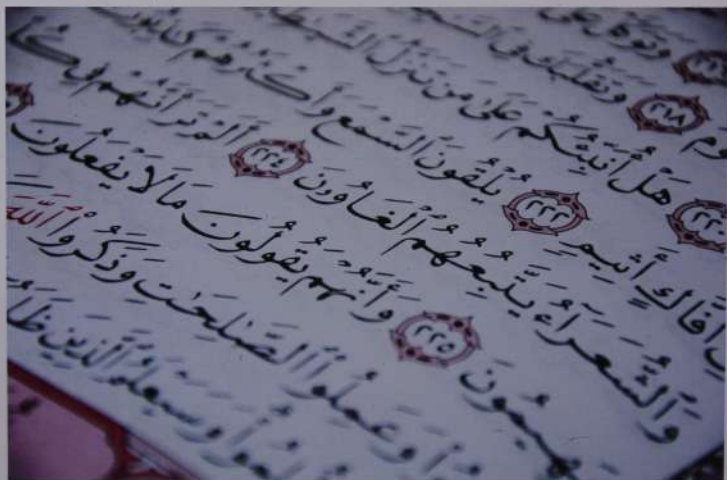 وَتَوَكَّلْ عَلَى
٢١٨ وَتَقَلُّبَكَ فِي
هَلْ أُنَبِّئُكُمْ عَلَىٰ مَن تَنَزَّلُ
أَفَّاكٍ أَثِيمٍ ٢٢٢ يُلْقُونَ ٱلسَّمْعَ وَأَكْثَرُهُمْ
وَٱلشُّعَرَآءُ يَتَّبِعُهُمُ ٱلْغَاوُۥنَ ٢٢٤ أَلَمْ تَرَ أَنَّهُمْ فِي
يَهِيمُونَ ٢٢٥ وَأَنَّهُمْ يَقُولُونَ مَا لَا يَفْعَلُونَ
وَعَمِلُوا۟ ٱلصَّـٰلِحَـٰتِ وَذَكَرُوا۟ ٱللَّهَ
وَسَيَعْلَمُ ٱلَّذِينَ